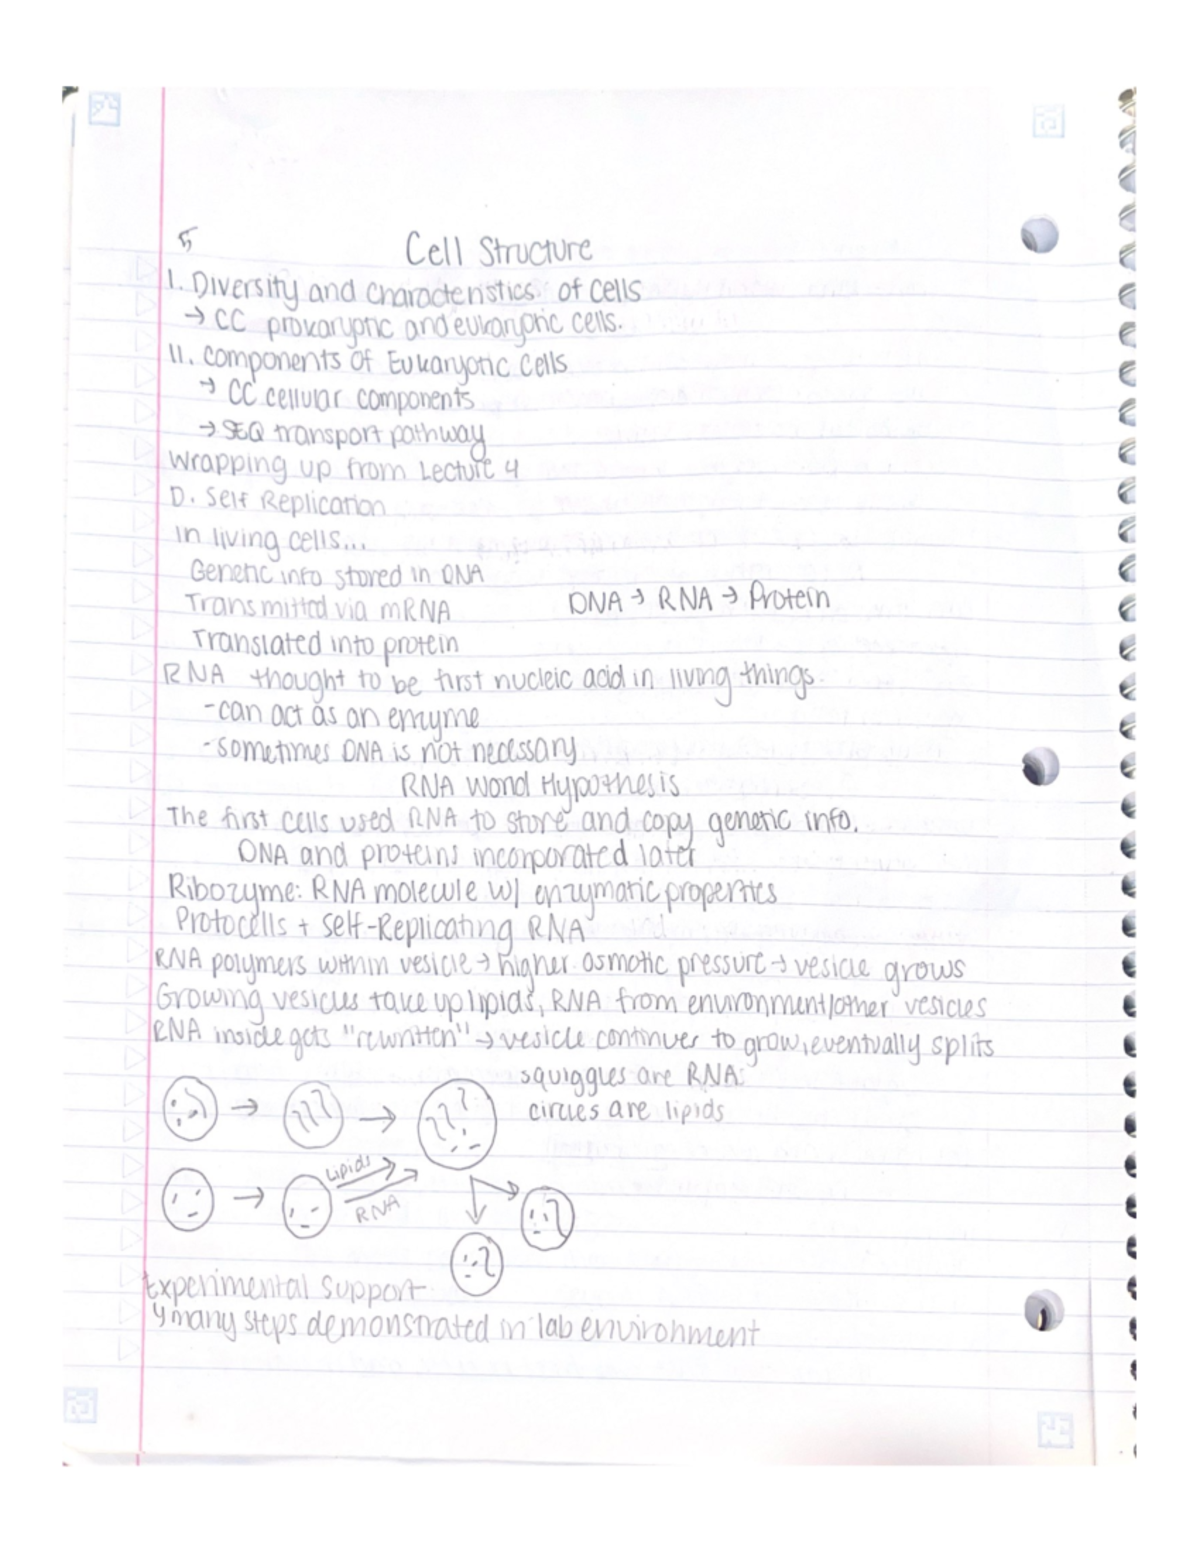 5
Cell Structure
I. Diversity and Characteristics of Cells
→ CC prokaryotic and eukaryotic cells.
II. Components of Eukaryotic Cells
→ CC cellular components
→ SEQ transport pathway
Wrapping up from Lecture 4
D. Self Replication
In living cells...
Genetic info stored in DNA
Transmitted via mRNA DNA → RNA → Protein
Translated into protein
RNA thought to be first nucleic acid in living things.
-can act as an enzyme
-sometimes DNA is not necessary
RNA World Hypothesis
The first cells used RNA to store and copy genetic info.
DNA and proteins incorporated later
Ribozyme: RNA molecule w/ enzymatic properties
Protocells + Self-Replicating RNA
RNA polymers within vesicle → higher osmotic pressure → vesicle grows
Growing vesicles take up lipids, RNA from environment/other vesicles
RNA inside gets "rewritten" → vesicle continues to grow, eventually splits
squiggles are RNA
circles are lipids
Lipids
RNA
Experimental Support
↳ many steps demonstrated in lab environment